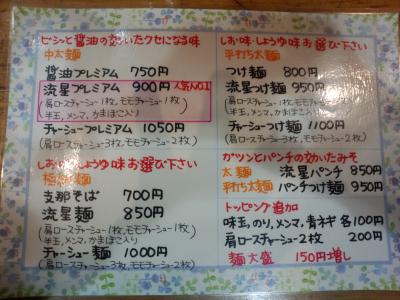 ビシッと醤油の効いたクセになる味
中太麺
醤油プレミアム 750円
流星プレミアム 900円 人気No.1
(肩ロースチャーシュー1枚,モモチャーシュー1枚)
半玉,メンマ,かまぼこ入り
チャーシュープレミアム 1050円
(肩ロースチャーシュー3枚,モモチャーシュー2枚)
しお味・しょうゆ味お選び下さい
極細麺
支那そば 700円
流星麺 850円
(肩ロースチャーシュー1枚,モモチャーシュー1枚)
半玉,メンマ,かまぼこ入り
チャーシュー麺 1000円
(肩ロースチャーシュー3枚,モモチャーシュー2枚)
しお味・しょうゆ味お選び下さい
平打ち太麺
つけ麺 800円
流星つけ麺 950円
(肩ロースチャーシュー1枚,モモチャーシュー1枚)
半玉,メンマ,かまぼこ入り
チャーシューつけ麺 1100円
(肩ロースチャーシュー3枚,モモチャーシュー2枚)
ガツンとパンチの効いたみそ
太麺 流星パンチ 850円
平打ち太麺 パンチつけ麺 950円
トッピング追加
味玉,のり,メンマ,青ネギ 各100円
肩ロースチャーシュー2枚 200円
麺大盛 150円増し